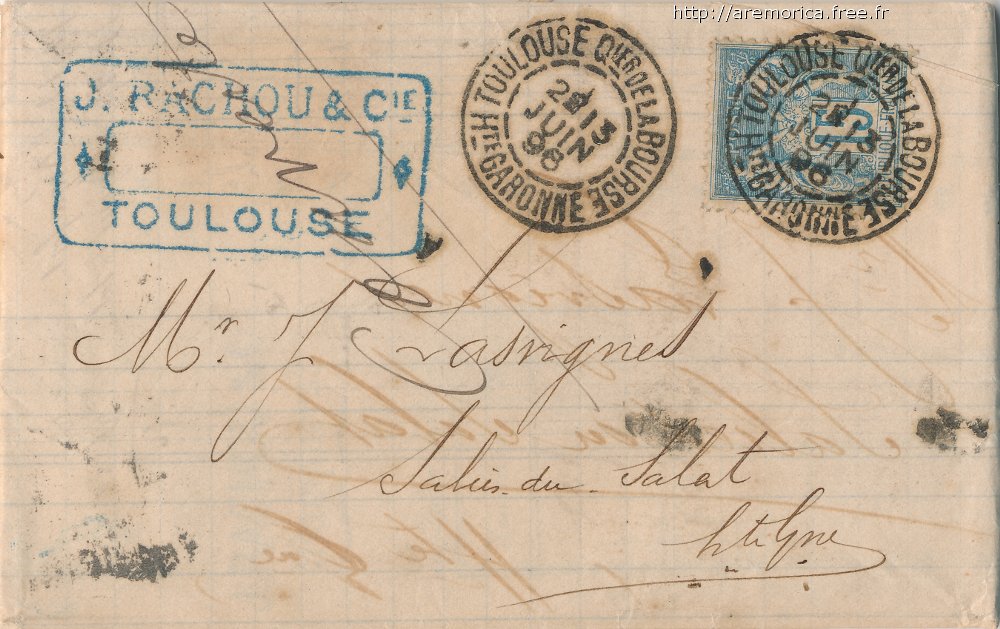 http://aremorica.free.fr
J. RACHOU & CIE
TOULOUSE
TOULOUSE QER DE LA BOURSE
JUIN
90
HTE GARONNE
TOULOUSE QER DE LA BOURSE
15
JUIN
90
HTE GARONNE
Mr J. Lasvignes
Salies-du-Salat
hte Gne